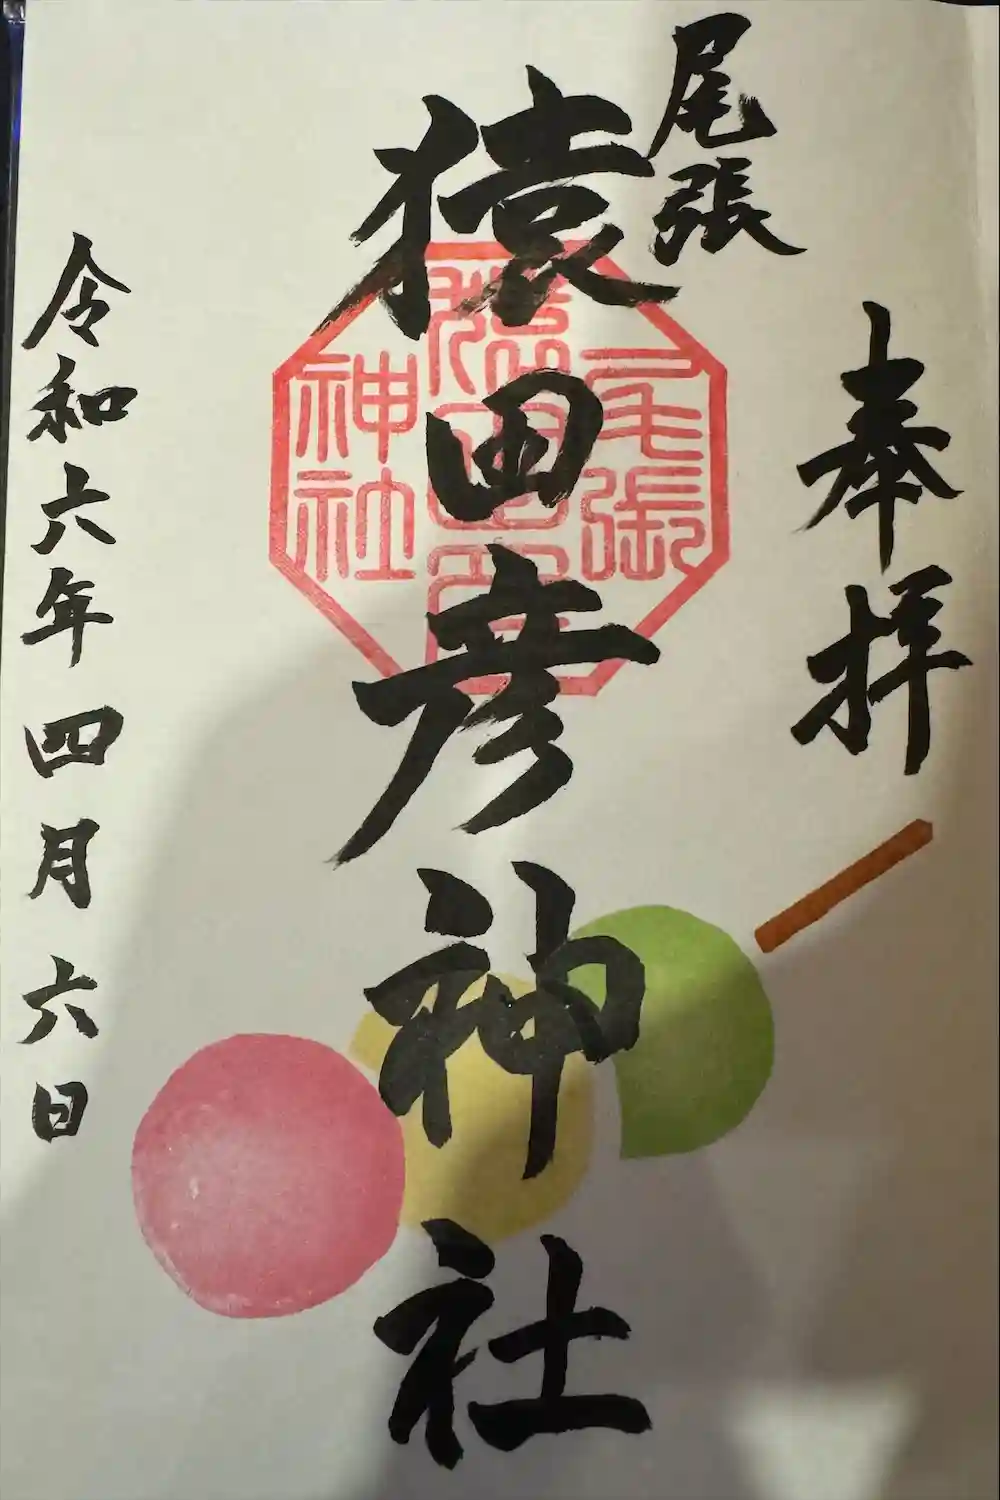 奉拝
尾張
猿田彦神社
令和六年四月六日
尾張
猿田彦
神社